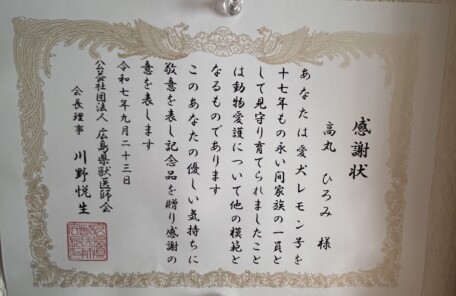 感謝状
高丸 ひろみ 様
あなたは愛犬レモン号を
十七年もの永い間家族の一員と
して見守り育てられましたこと
は動物愛護について他の模範と
なるものであります
このあなたの優しい気持ちに
敬意を表し記念品を贈り感謝の
意を表します
令和七年九月二十三日
公益社団法人 広島県獣医師会
会長理事 川野悦生